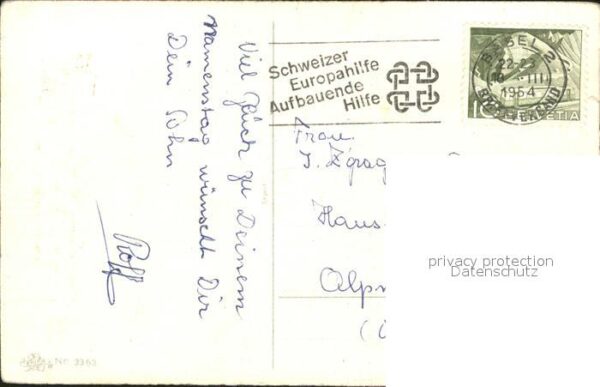 Viel Glück zu Deinem
Namenstag wünscht Dir
Dein Sohn
Rolf
Schweizer
Europahilfe
Aufbauende
Hilfe
BASEL 2
22-23
III
1954
BRIEFVERSAND
10 HELVETIA
Frau
Haus
Alpn
privacy protection
Datenschutz
Nr. 3363